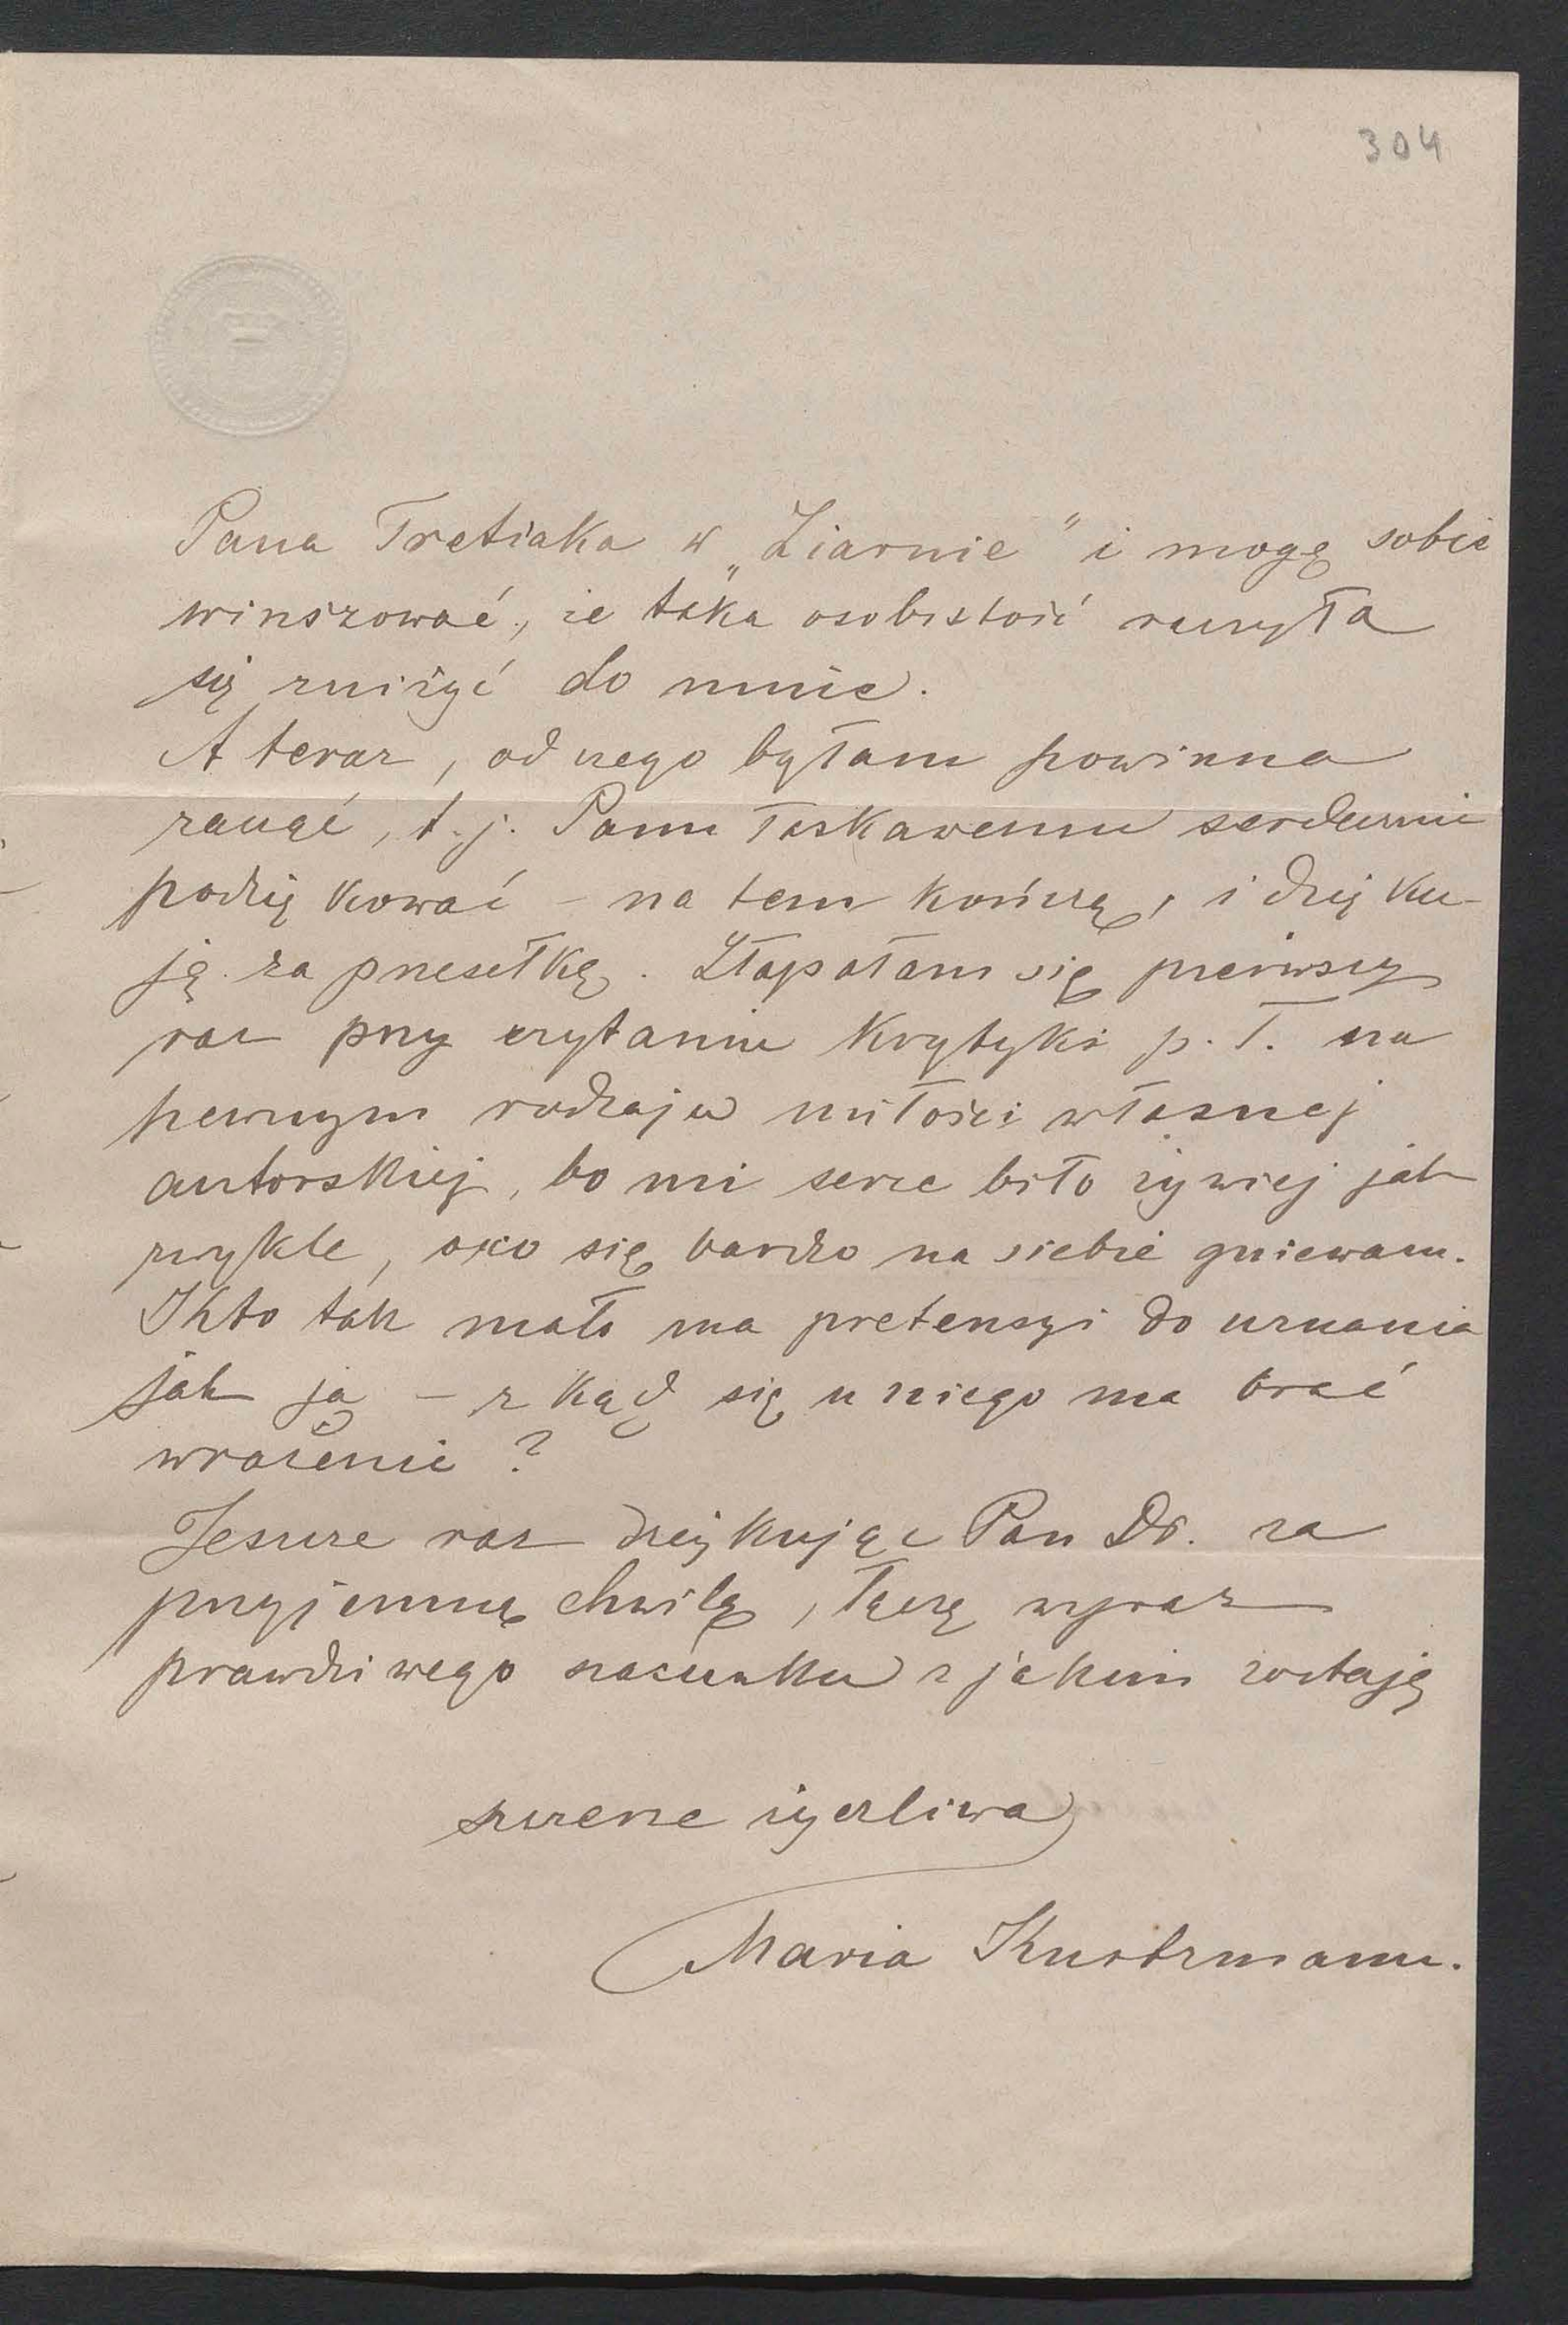 304
Pana Tretiaka w „Ziarnie" i mogę sobie
winszować, że taka osobistość raczyła
się zniżyć do mnie.
A teraz, od czego byłam powinna
zacząć, t. j. Panu łaskawemu serdecznie
podziękować – na tem kończę, i dzięku-
ję za przesełkę. Złapałam się pierwszy
raz przy czytaniu krytyki p. T. na
pewnym rodzaju miłości własnej
autorskiej, bo mi serce biło żywiej jak
zwykle, oco się bardzo na siebie gniewam.
Kto tak mało ma pretensyi do uznania
jak ja – zkąd się u niego ma brać
wrażenie?
Jeszcze raz dziękując Pan Dr. za
przyjemną chwilę, łączę wyraz
prawdziwego szacunku z jakim zostaję
szczerze życzliwa
Maria